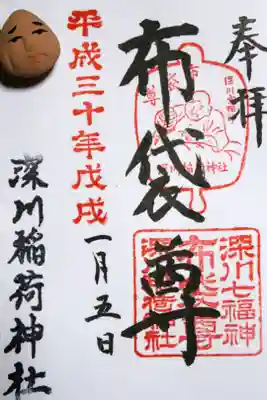 奉拝
布袋尊
布袋尊
深川稲荷神社
深川七福神
布袋尊
深川稲荷神社
平成三十年戊戌
一月五日
深川稲荷神社